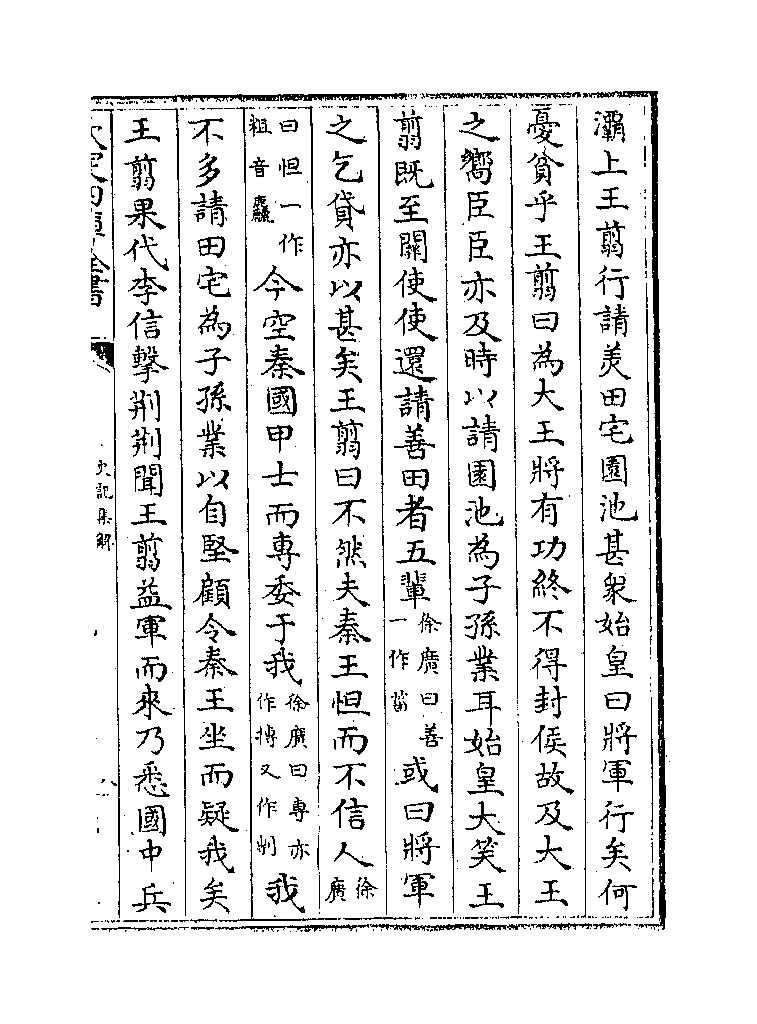 灞上王翦行請美田宅園池甚衆始皇曰將軍行矣何
憂貧乎王翦曰為大王將有功終不得封侯故及大王
之嚮臣臣亦及時以請園池為子孫業耳始皇大笑王
翦既至關使使還請善田者五輩徐廣曰善一作菑或曰將軍
之乞貸亦以甚矣王翦曰不然夫秦王怚而不信人徐廣
曰怚一作粗音麤今空秦國甲士而專委于我徐廣曰專亦作摶又作剸我
不多請田宅為子孫業以自堅顧令秦王坐而疑我矣
王翦果代李信擊荆荆聞王翦益軍而來乃悉國中兵
欽定四庫全書
史記集解
八